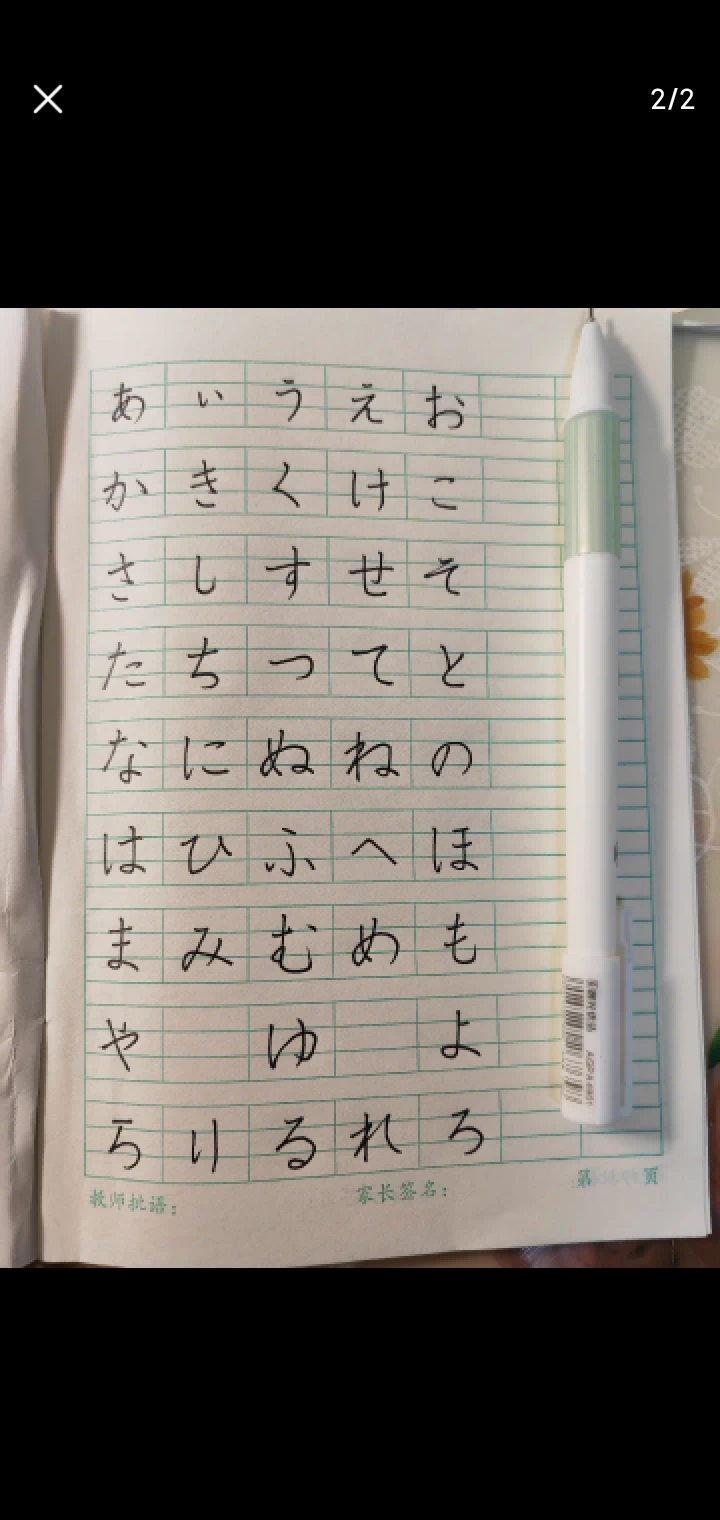 2/2
あ い う え お
か き く け こ
さ し す せ そ
た ち つ て と
な に ぬ ね の
は ひ ふ へ ほ
ま み む め も
や ゆ よ
ら り る れ ろ
教师批语： 家长签名： 第 页